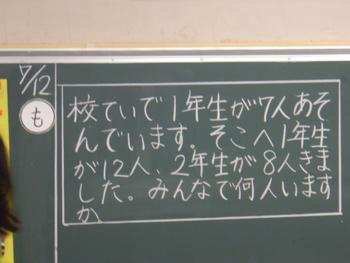 7/12
も
校ていで1年生が7人あそ
んでいます。そこへ1年生
が12人、2年生が8人きま
した。みんなで何人います
か